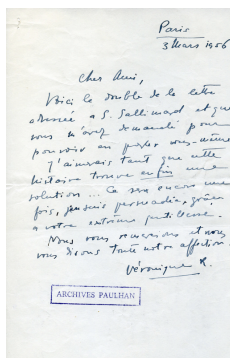 Paris
3 Mars 1956
Cher Ami,
Voici le double de la lettre
adressée à G. Gallimard et que
vous m'avez demandé pour
pouvoir en parler vous-même
J'aimerais tant que cette
histoire trouve enfin une
solution ... Ce sera encore une
fois, j'en suis persuadée, grâce
à votre extrême gentillesse.
Nous vous remercions et nous
vous disons toute notre affection.
Véronique R.
ARCHIVES PAULHAN